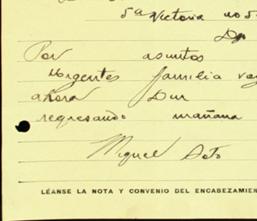 5a Victoria no 5
Por asuntos
urgentes familia voy
ahora Dur
regresando mañana
Miguel Soto
LÉANSE LA NOTA Y CONVENIO DEL ENCABEZAMIEN